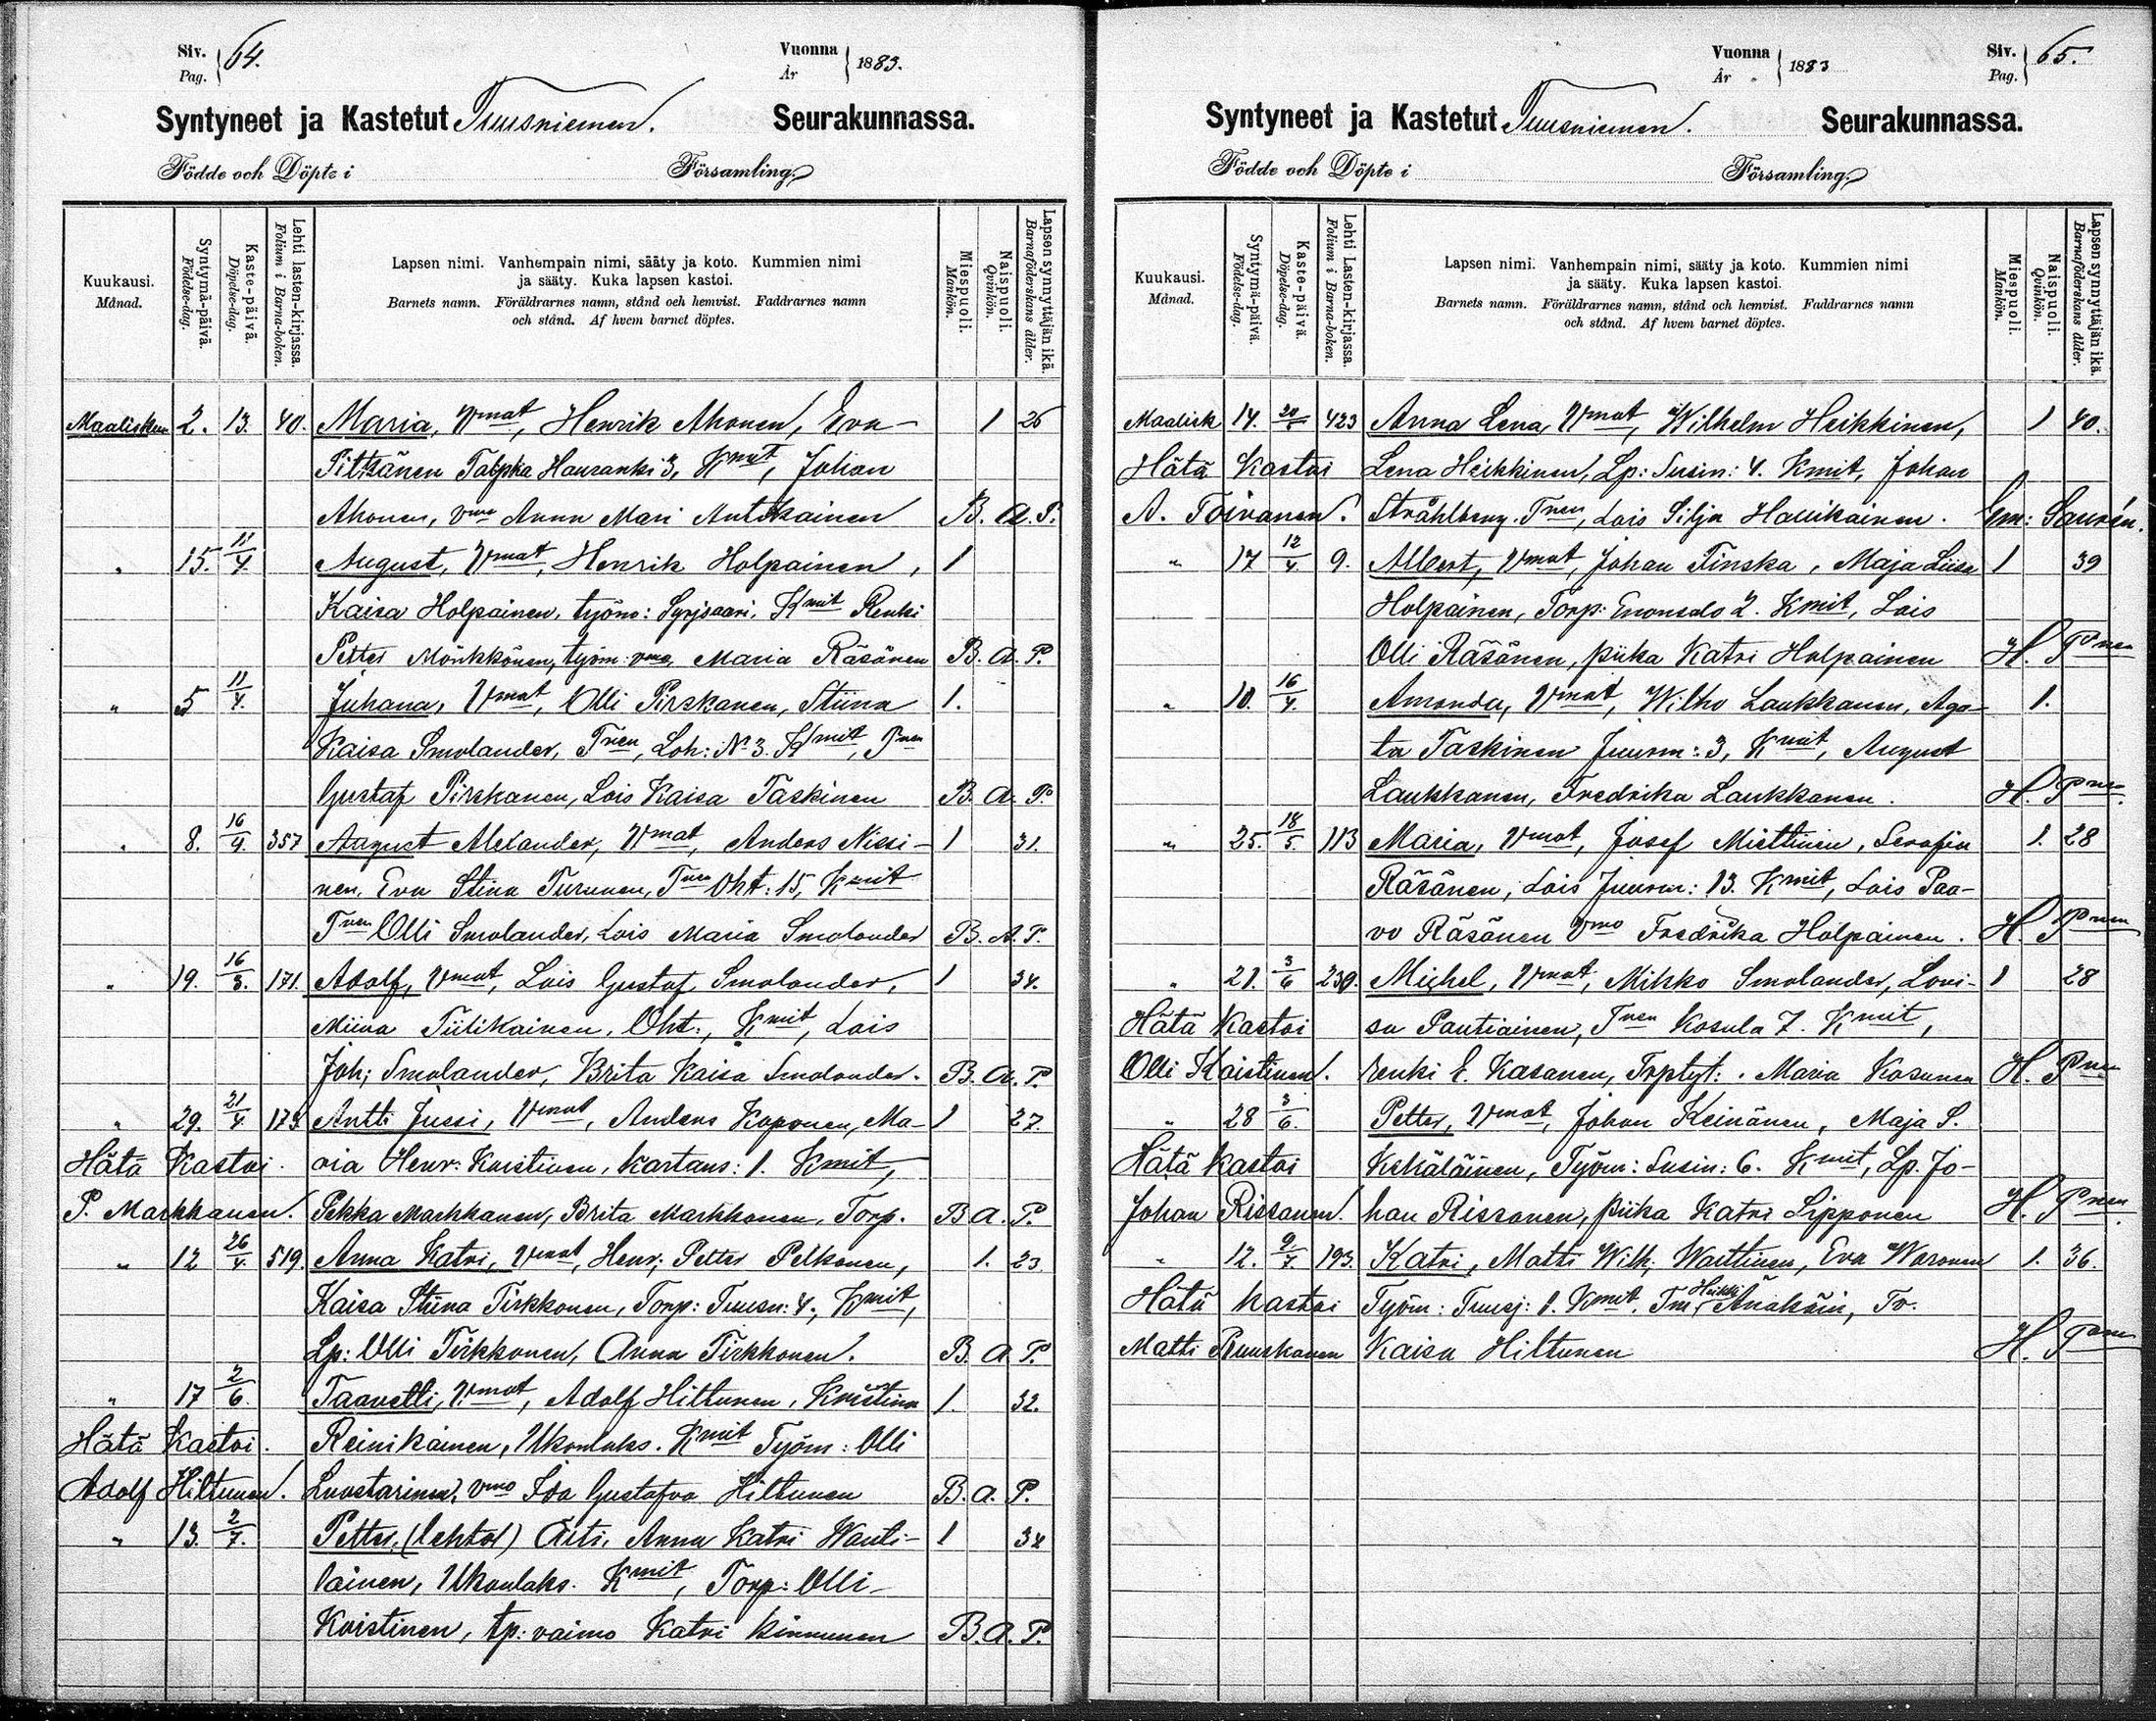 Siv. 64.
Pag.
Vuonna 1883.
År
Syntyneet ja Kastetut Tuusniemen. Seurakunnassa.
Födde och Döpte i Församling.
Kuukausi. Månad.
Syntymä-päivä. Födelse-dag.
Kaste-päivä. Döpelse-dag.
Lehti lasten-kirjassa. Folium i Barna-boken.
Lapsen nimi. Vanhempain nimi, sääty ja koto. Kummien nimi
ja sääty. Kuka lapsen kastoi.
Barnets namn. Föräldrarnes namn, stånd och hemvist. Faddrarnes namn
och stånd. Af hvem barnet döptes.
Miespuoli. Mankön.
Naispuoli. Qvinkön.
Lapsen synnyttäjän ikä. Barnaföderskans ålder.
Maaliskuu 2. 13. 40. Maria, Vmat, Henrik Ahonen, Eva 1 26
Pitkänen Hauranki 3, Kmit, Johan
Ahonen, vmo Anna Mari Antikainen B. A. P.
" 15. 11/4. August, Vmat, Henrik Holpainen, 1
Kaisa Holpainen, työm: Syrjsaari, Kmit Renki
Petter Mönkkönen, työm: vmo, Maria Räsänen B. A. P.
" 5 11/4. Juhana, Vmat, Olli Pirskanen, Stiina 1.
Kaisa Smolander, Tnen, Loh: No 3. Kmit, Pnen
Gustaf Pirskanen, Lois Kaisa Taskinen B. A. P.
" 8. 16/4. 357 August Alexander, Vmat, Anders Nissi- 1 31.
nen, Eva Stina Turunen, Tnen Oht: 15, Kmit
Tnen Olli Smolander, Lois Maria Smolander B. A. P.
" 19. 16/3. 171. Adolf, Vmat, Lois Gustaf Smolander, 1 34.
Miina Tiilikainen, Oht:, Kmit, Lois
Joh; Smolander, Brita Kaisa Smolander. B. A. P.
" 29. 21/4. 173 Antti Jussi, Vmat, Anders Koponen, Ma- 1 27.
Hätä Kastoi. ria Henr: Koistinen, Kartans: 1. Kmit,
P. Markkanen. Pekka Markkanen, Brita Markkanen, Torp. B A. P.
" 12 26/4. 519. Anna Katri, Vmat, Henr; Petter Pelkonen, 1. 23
Kaisa Stiina Tirkkonen, Torp: Tuusn: 4., Kmit,
Lp: Olli Tirkkonen, Anna Tirkkonen. B. A. P.
" 17 2/6. Taavetti, Vmat, Adolf Hiltunen, Kristina 1. 32.
Hätä Kastoi. Reinikainen, Ukonlaks. Kmit Työm: Olli
Adolf Hiltunen. Luostarinen, vmo Ida Gustafva Hiltunen B. A. P.
" 13. 2/7. Petter, (lehtol) Äiti, Anna Katri Wauti- 1 34
lainen, Ukonlaks. Kmit, Torp: Olli
Koistinen, tp: vaimo Katri Kinnunen B. A. P.
Vuonna 1883
År
Siv. 65.
Pag.
Syntyneet ja Kastetut Tuusniemen. Seurakunnassa.
Födde och Döpte i Församling.
Kuukausi. Månad.
Syntymä-päivä. Födelse-dag.
Kaste-päivä. Döpelse-dag.
Lehti Lasten-kirjassa. Folium i Barna-boken.
Lapsen nimi. Vanhempain nimi, sääty ja koto. Kummien nimi
ja sääty. Kuka lapsen kastoi.
Barnets namn. Föräldrarnes namn, stånd och hemvist. Faddrarnes namn
och stånd. Af hvem barnet döptes.
Miespuoli. Mankön.
Naispuoli. Qvinkön.
Lapsen synnyttäjän ikä. Barnaföderskans ålder.
Maalisk 14. 423 Anna Lena, Vmat, Wilhelm Heikkinen, 1 40.
Hätä Kastoi Lena Heikkinen, Lp: Susin: 4. Kmit, Johan
A. Toivanen. Stråhlberg. Tnen, Lois Silja Haukainen.
" 17 12/4 9. Albert, Vmat, Johan Tinska, Maja Liisa 1 39
Holpainen, Torp: Enonsalo 2. Kmit, Lois
Olli Räsänen, piika Katri Holpainen H. Pnen
" 10. 16/4. Amanda, Vmat, Wilho Laukkanen, Aga- 1.
ta Taskinen Juurm: 3, Kmit, August
Laukkanen, Fredrika Laukkanen. H. Pnen.
" 25. 18/5. 113 Maria, Vmat, Josef Miettinen, Serafia 1. 28
Räsänen, Lois Juurm: 13. Kmit, Lois Paa-
vo Räsänen Vmo Fredrika Holpainen. H. Pnen
" 21. 3/6 239. Michel, Vmat, Mikko Smolander, Lovi- 1 28
Hätä Kastoi sa Pautiainen, Tnen Kosula 7. Kmit,
Olli Koistinen. renki E. Kasanen, Torptyt: Maria Kosunen H. Pnen
" 28 3/6. Petter, Vmat, Johan Keinänen, Maja S.
Hätä Kastoi Kekäläinen, Työm: Susin: 6. Kmit, Lp. Jo-
Johan Rissanen. han Rissanen, piika Katri Lipponen H. Pnen.
" 12. 9/7. 193. Katri, Matti Wilh; Wauttinen, Eva Woronen 1. 36.
Hätä Kastoi Työm: Tuusj: 1. Kmit. Tm, Heikki Anakäin, Tr.
Matti Ruuskanen Kaisa Hiltunen H. Pnen